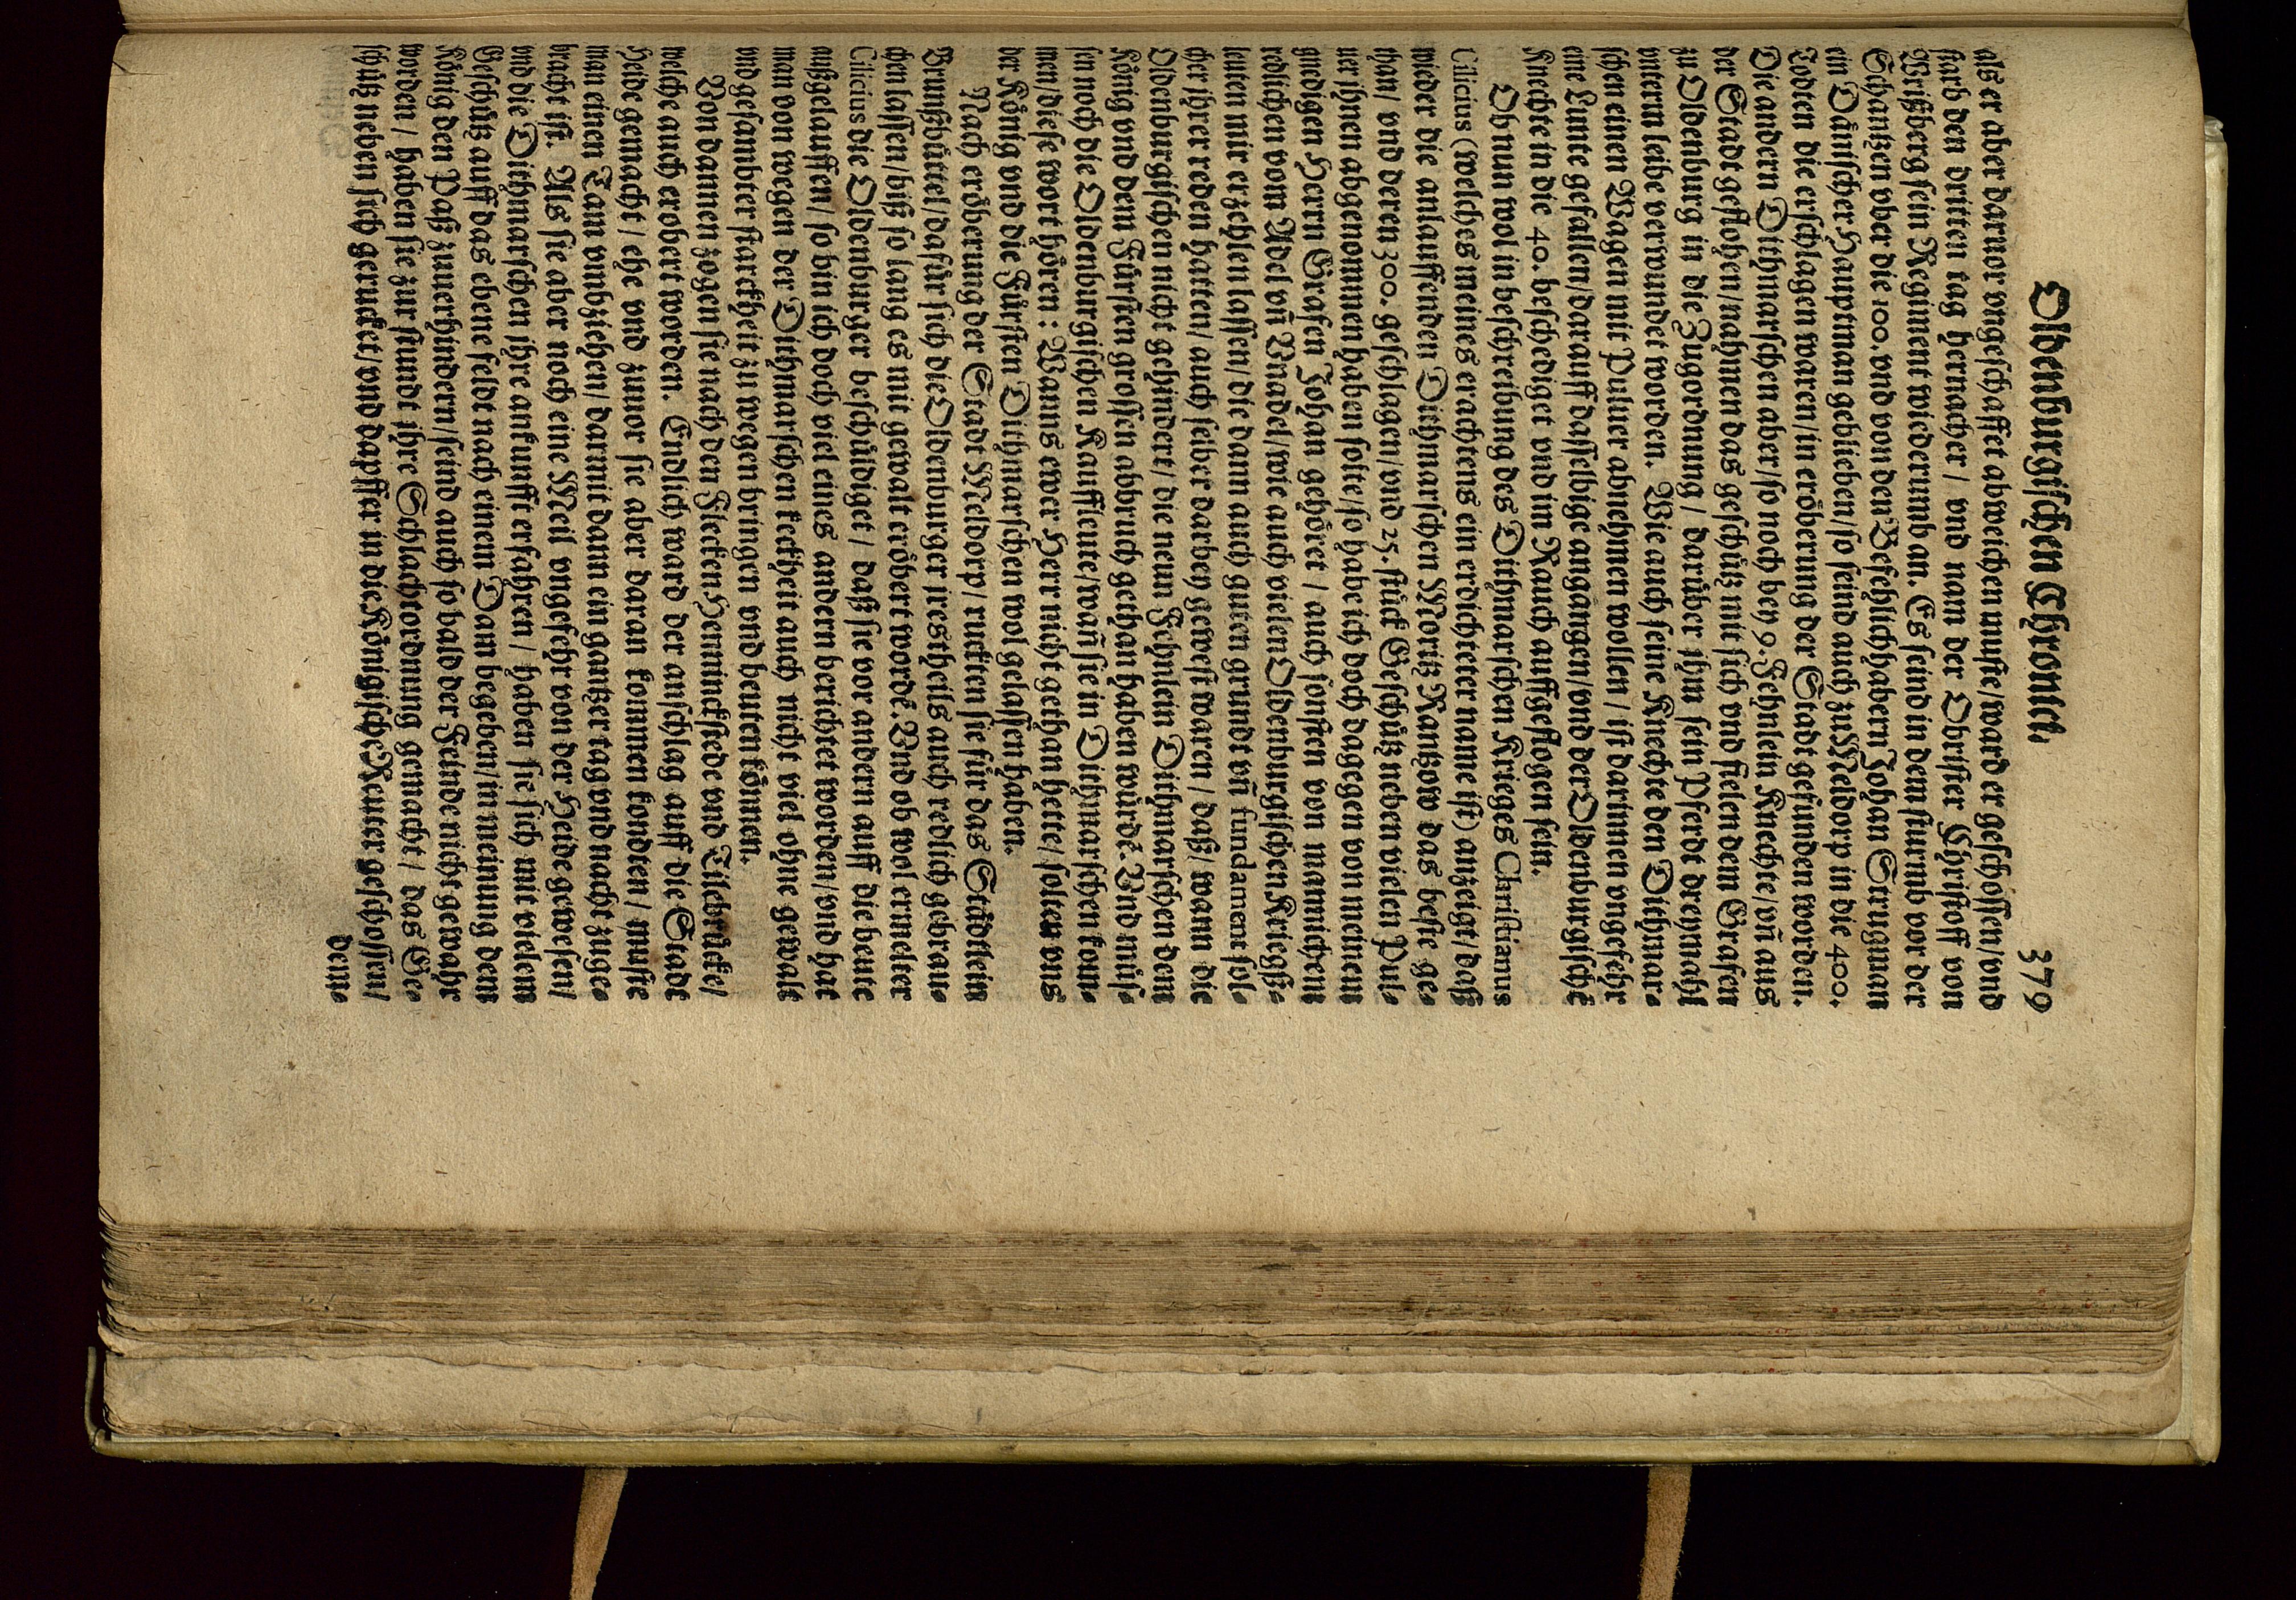 Oldenburgischen Chronick. 379
als er aber darvor ungeschaffet abweichen muste/ward er geschossen/vnd
starb den dritten tag hernacher / vnd nam der Obrister Christoff von
Wrißberg sein Regiment wiederumb an. Es seind in dem sturmb vor der
Schantzen vber die 100. vnd von den Befehlichhabern Johan Strugman
ein Dänischer Hauptman geblieben/so seind auch zu Meldorp in die 400.
Todten die erschlagen waren/in eröberung der Stadt gefunden worden.
Die andern Dithmarschen aber/so noch bey 9. Fehnlein Knechte/vn̄ aus
der Stadt geflohen/nahmen das geschütz mit sich vnd fielen dem Grafen
zu Oldenburg in die Zugordnung / darüber ihm sein Pferdt dreymahl
vnterm leibe verwundet worden. Wie auch seine Knechte den Dithmar-
schen einen Wagen mit Puluer abnehmen wollen / ist darinnen vngefehr
eine Lunte gefallen/darauff dasselbige angangen/vnd der Oldenburgischē
Knechte in die 40. beschediget vnd im Rauch auffgeflogen sein.
Ob nun wol in beschreibung des Dithmarschen Krieges Christianus
Cilicius (welches meines erachtens ein erdichteter name ist) anzeigt/daß
wieder die anlauffenden Dithmarschen Moritz Rantzow das beste ge-
than/ vnd deren 300. geschlagen/vnd 25. stück Geschütz neben vielen Pul-
uer ihnen abgenommen haben solte/so habe ich doch dagegen von meinem
gnedigen Herrn Grafen Johan gehöret / auch sonsten von mannichem
redlichen vom Adel vn̄ Vnadel/wie auch vielen Oldenburgischen Kriegß-
leuten mir erzehlen lassen/die dann auch guten grundt vn̄ fundament sol-
cher ihrer reden hatten/ auch selber darbey gewest waren / daß/wann die
Oldenburgischen nicht gehindert/ die neun Fehnlein Dithmarschen dem
König vnd dem Fürsten grossen abbruch gethan haben würdē. Vnd müs-
sen noch die Oldenburgischen Kauffleute/wañ sie in Dithmarschen kom-
men/diese wort hören : Wanns ewer Herr nicht gethan hette/ solten vns
der König vnd die Fürsten Dithmarschen wol gelassen haben.
Nach eröberung der Stadt Meldorp/ ruckten sie für das Städtlein
Brunßbüttel/dafür sich die Oldenburger jrestheils auch redlich gebrau-
chen lassen/biß so lang es mit gewalt eröbert wordē. Vnd ob wol ermelter
Cilicius die Oldenburger beschüldiget / daß sie vor andern auff die beute
außgelauffen/ so bin ich doch viel eines andern berichtet worden/vnd hat
man von wegen der Dithmarschen keckheit auch nicht viel ohne gewalt
vnd gesambter starckheit zu wegen bringen vnd beuten können.
Von dannen zogen sie nach den Flecken Hemminckstede vnd Tilebrücke/
welche auch erobert worden. Endlich ward der anschlag auff die Stadt
Heide gemacht / ehe vnd zuuor sie aber daran kommen kondten/ muste
man einen Tam vmbziehen/ darmit dann ein gantzer tag vnd nacht zuge-
bracht ist. Als sie aber noch eine Meil vngefehr von der Heide gewesen/
vnd die Dithmarschen ihre ankunfft erfahren / haben sie sich mit vielem
Geschütz auff das ebene feldt nach einem Dam begeben/in meinung dem
König den Paß zuuerhindern/seind auch so bald der Feinde nicht gewahr
worden / haben sie zur stundt ihre Schlachtordnung gemacht / das Ge-
schütz neben sich gerucket/vnd dapffer in die Königische Reuter geschossen/
denn-